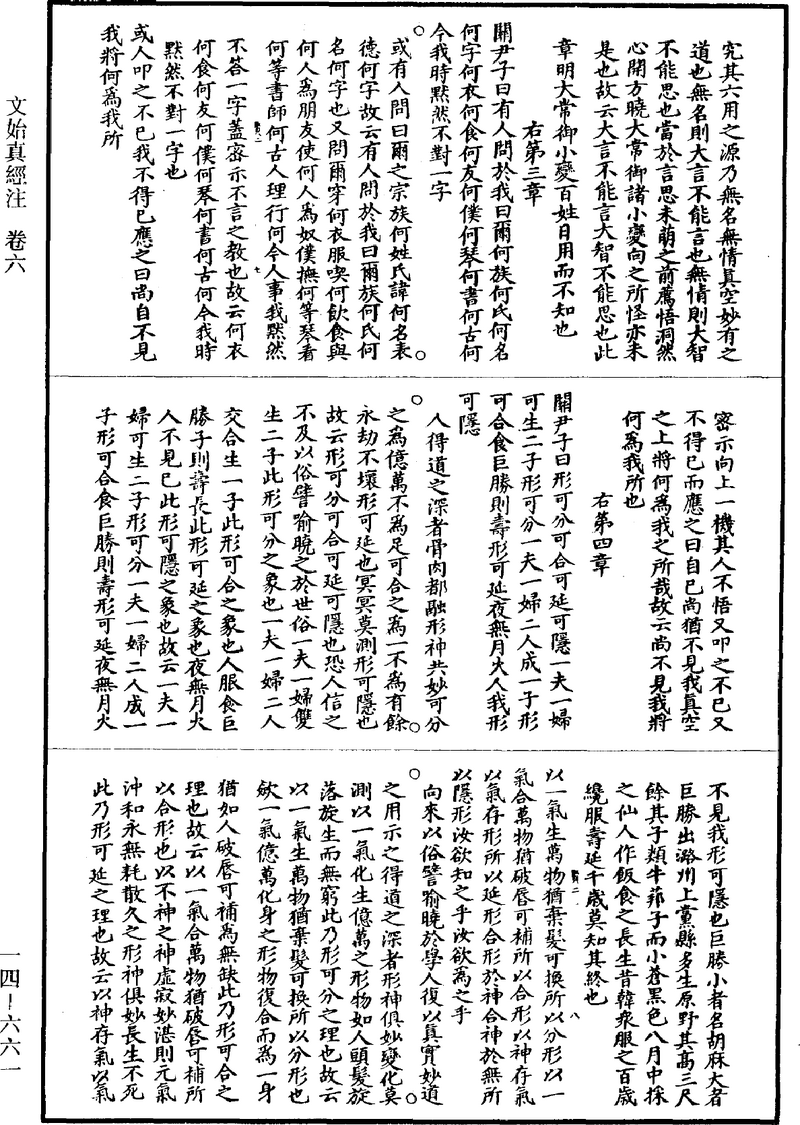 究其六用之源乃無名無情真空妙有之
道也無名則大言不能言也無情則大智
不能思也當於言思未萌之前薦悟洞然
心開方曉大常御諸小變向之所怪亦未
是也故云大言不能言大智不能思也此
章明大常御小變百姓日用而不知也
右第三章
關尹子曰有人問於我曰爾何族何氏何名
何字何衣何食何友何僕何琴何書何古何
今我時黙然不對一字
或有人問曰爾之宗族何姓氏諱何名表
徳何字故云有人問於我曰爾族何氏何
名何字也又問爾穿何衣服喫何飲食與
何人為朋友使何人為奴僕撫何等琴看
何等書師何古人理行何今人事我黙然
不答一字蓋密示不言之教也故云何衣
何食何友何僕何琴何書何古何今我時
黙然不對一字也
或人叩之不已我不得已應之曰尚自不見
我將何為我所
密示向上一機其人不悟又叩之不已又
不得已而應之曰自己尚猶不見我真空
之上將何為我之所哉故云尚不見我將
何為我所也
右第四章
關尹子曰形可分可合可延可隱一夫一婦
可生二子形可分一夫一婦二人成一子形
可合食巨勝則壽形可延夜無月火人我形
可隱
人得道之深者骨肉都融形神共妙可分
之為億萬不為足可合之為一不為有餘
永劫不壞形可延也冥冥莫測形可隱也
故云形可分可合可延可隱也恐人信之
不及以俗譬喻曉之於世俗一夫一婦雙
生二子此形可分之象也一夫一婦二人
交合生一子此形可合之象也人服食巨
勝子則壽長此形可延之象也夜無月火
人不見已此形可隱之象也故云一夫一
婦可生二子形可分一夫一婦二人成一
子形可合食巨勝則壽形可延夜無月火
不見我形可隱也巨勝小者名胡麻大者
巨勝出潞州上黨縣多生原野其高三尺
餘其子類牛蒡子而小蒼黑色八月中採
之仙人作飯食之長生昔韓衆服之百歲
纔服壽延千歲莫知其終也
以一氣生萬物猶棄髮可換所以分形以一
氣合萬物猶破唇可補所以合形以神存氣
以氣存形所以延形合形於神合神於無所
以隱形汝欲知之乎汝欲為之乎
向來以俗譬喻曉於學人復以真實妙道
之用示之得道之深者形神俱妙變化莫
測以一氣化生億萬之形物如人頭髮旋
落旋生而無窮此乃形可分之理也故云
以一氣生萬物猶棄髮可換所以分形也
斂一氣億萬化身之形物復合而為一身
猶如人破唇可補為無缺此乃形可合之
理也故云以一氣合萬物猶破唇可補所
以合形也以不神之神虛寂妙湛則元氣
沖和永無耗散久之形神俱妙長生不死
此乃形可延之理也故云以神存氣以氣
文始真經注 卷六
一四－六六一